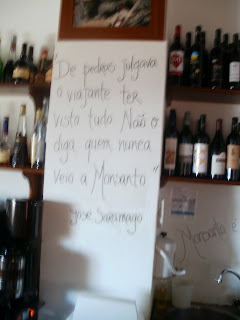 "De pedras julgava
o viajante ter
visto tudo Não o
diga quem nunca
veio a Monsanto"
José Saramago
Monsanto é